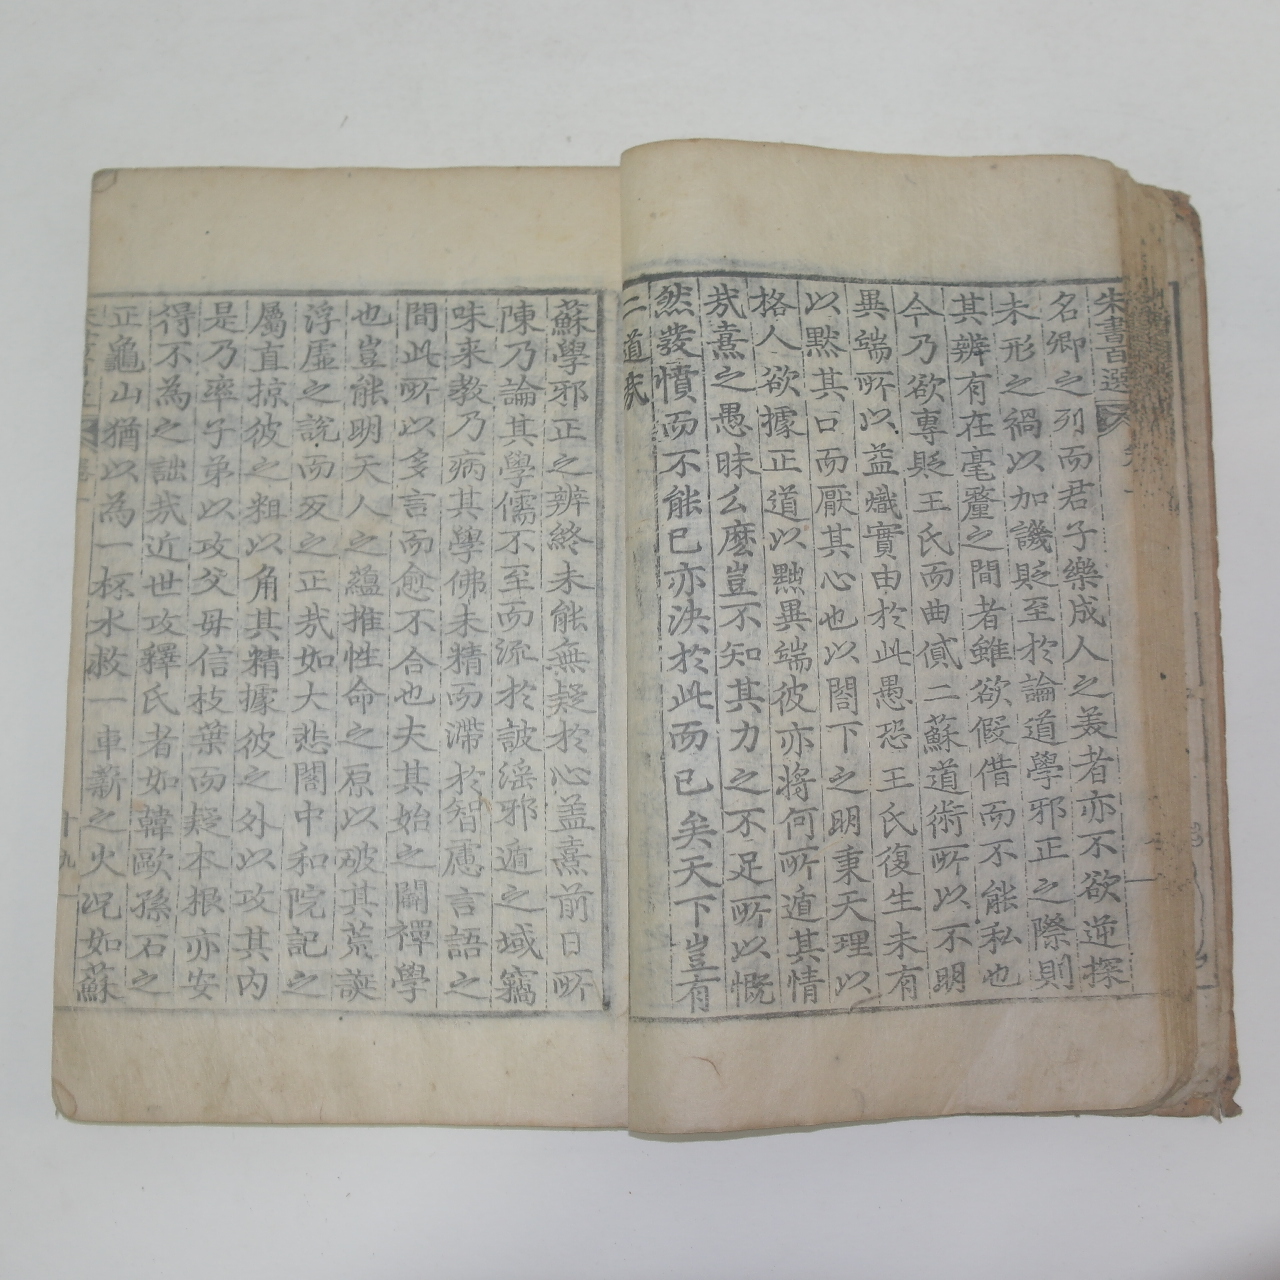 朱書百選
名卿之列而君子樂成人之美者亦不欲逆探
未形之禍以加譏貶至於論道學邪正之際則
其辨有在毫釐之間者雖欲假借而不能私也
今乃欲專貶王氏而曲貸二蘇道術所以不明
異端所以益熾實由於此愚恐王氏復生未有
以默其口而厭其心也以閤下之明秉天理以
格人欲據正道以黜異端彼亦將何所遁其情
哉熹之愚昧么麼豈不知其力之不足所以慨
然發憤而不能已亦決於此而已矣天下豈有
二道哉
蘇學邪正之辨終未能無疑於心盖熹前日所
陳乃論其學儒不至而流於詖淫邪遁之域竊
味来教乃病其學佛未精而滯於智慮言語之
間此所以多言而愈不合也夫其始之闢禪學
也豈能明天人之蘊推性命之原以破其荒誕
浮虛之說而反之正哉如大悲閤中和院記之
屬直掠彼之粗以角其精據彼之外以攻其内
是乃率子弟以攻父母信枝葉而疑本根亦安
得不為之詘哉近世攻釋氏者如韓歐孫石之
正龜山猶以為一杯水救一車薪之火况如蘇
十九